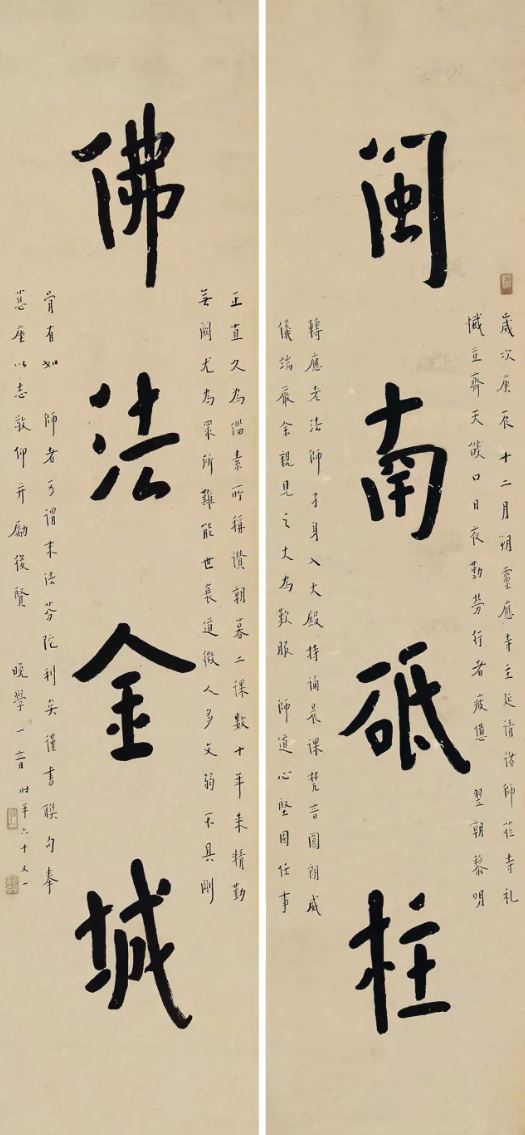 歲次庚辰十二月朔靈應寺主延請諸師蒞寺礼
懺並齊天燄口日夜勤勞行者疲憊 翌朝黎明
閩南砥柱
轉應老法師孑身入大殿持誦晨課梵音圓朗威
儀端嚴余親見之大為歎服 師道心堅固任事
正直久為緇素所稱讚朝暮二課數十年來精勤
無闕尤為眾所難能世衰道微人多文弱不具剛
佛法金城
骨有如 師者可謂末法芬陀利矣謹書聯句奉
慧座以志敬仰并勵後賢 晚學一音 时年六十又一